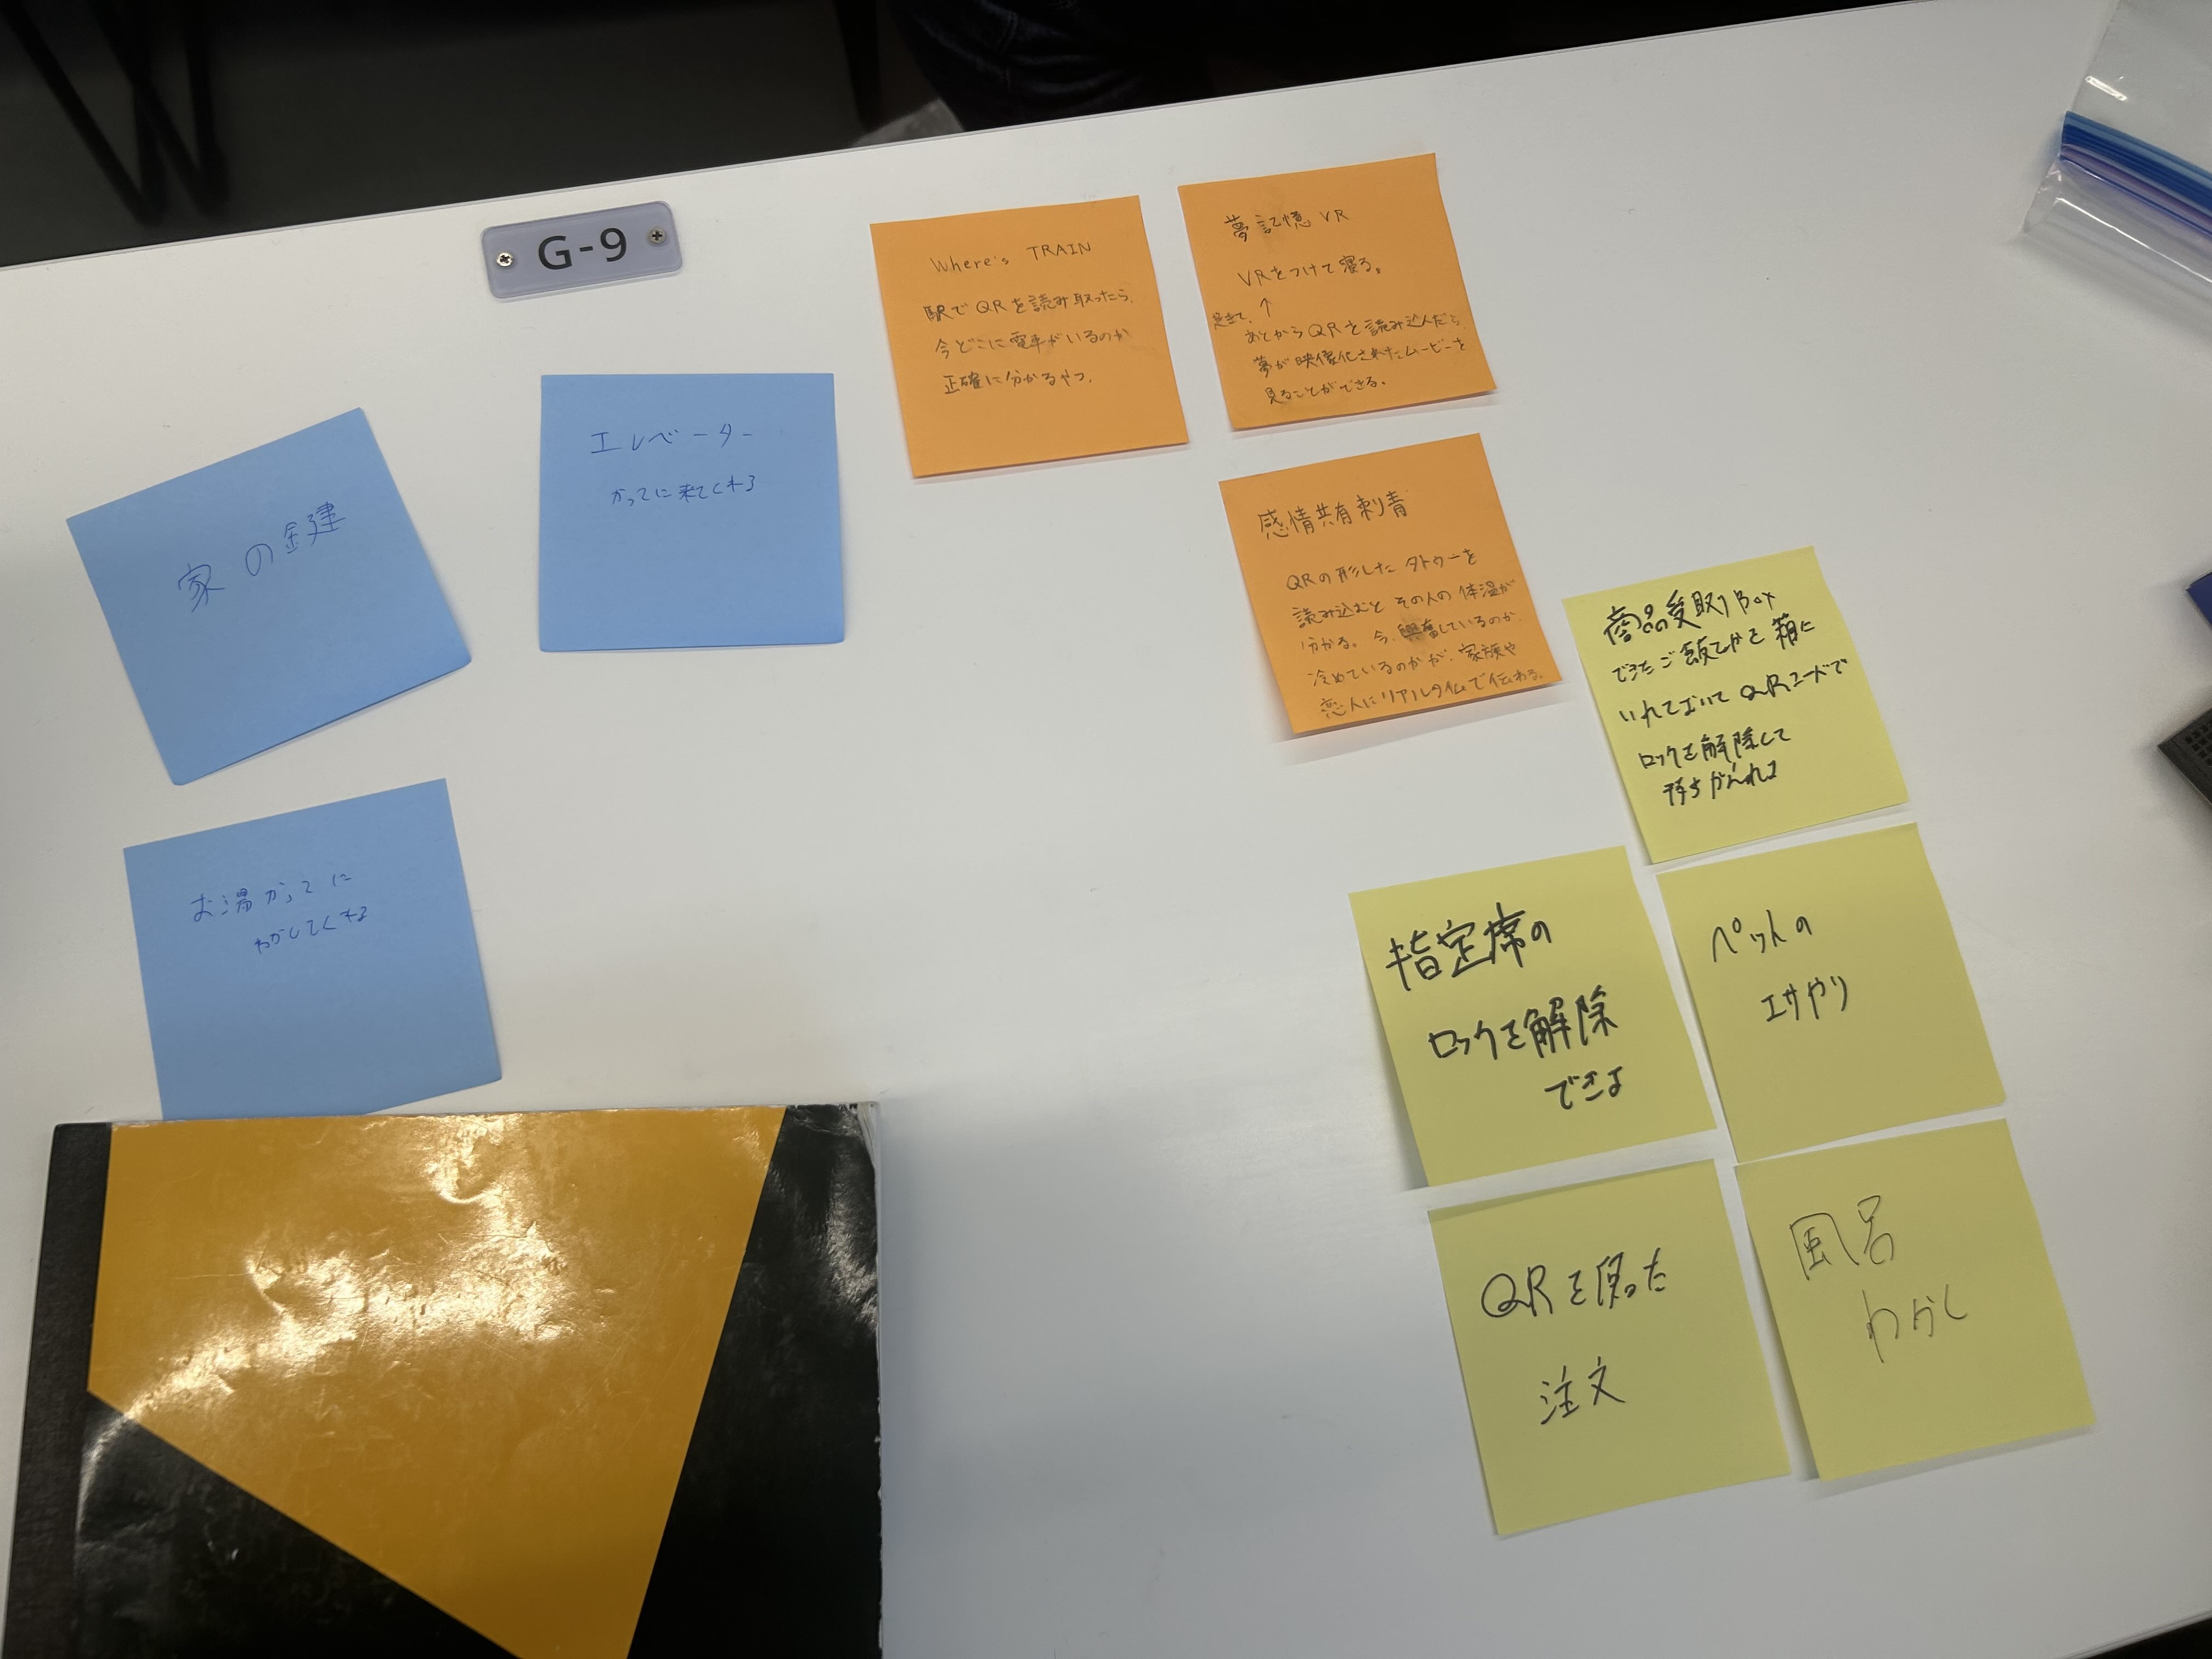 G-9
家の鍵
エレベーター
かってに来てくれる
お湯かってに
わかしてくれる
Where's TRAIN
駅でQRを読み取ったら、
今どこに電車がいるのか
正確に分かるやつ。
夢記憶VR
VRをつけて寝る。
↑
起きて、
あとからQRを読み込んだら、
夢が映像化されたムービーを
見ることができる。
感情共有刺青
QRの形した タトゥーを
読み込むと その人の体温が
分かる。今、興奮しているのか、
冷めているのかが、家族や
恋人にリアルタイムで伝わる。
商品受取りBox
できたご飯とかを箱に
いれておいてQRコードで
ロックを解除して
持ちかえれる
指定席の
ロックを解除
できる
ペットの
エサやり
QRを使った
注文
風呂
わかし